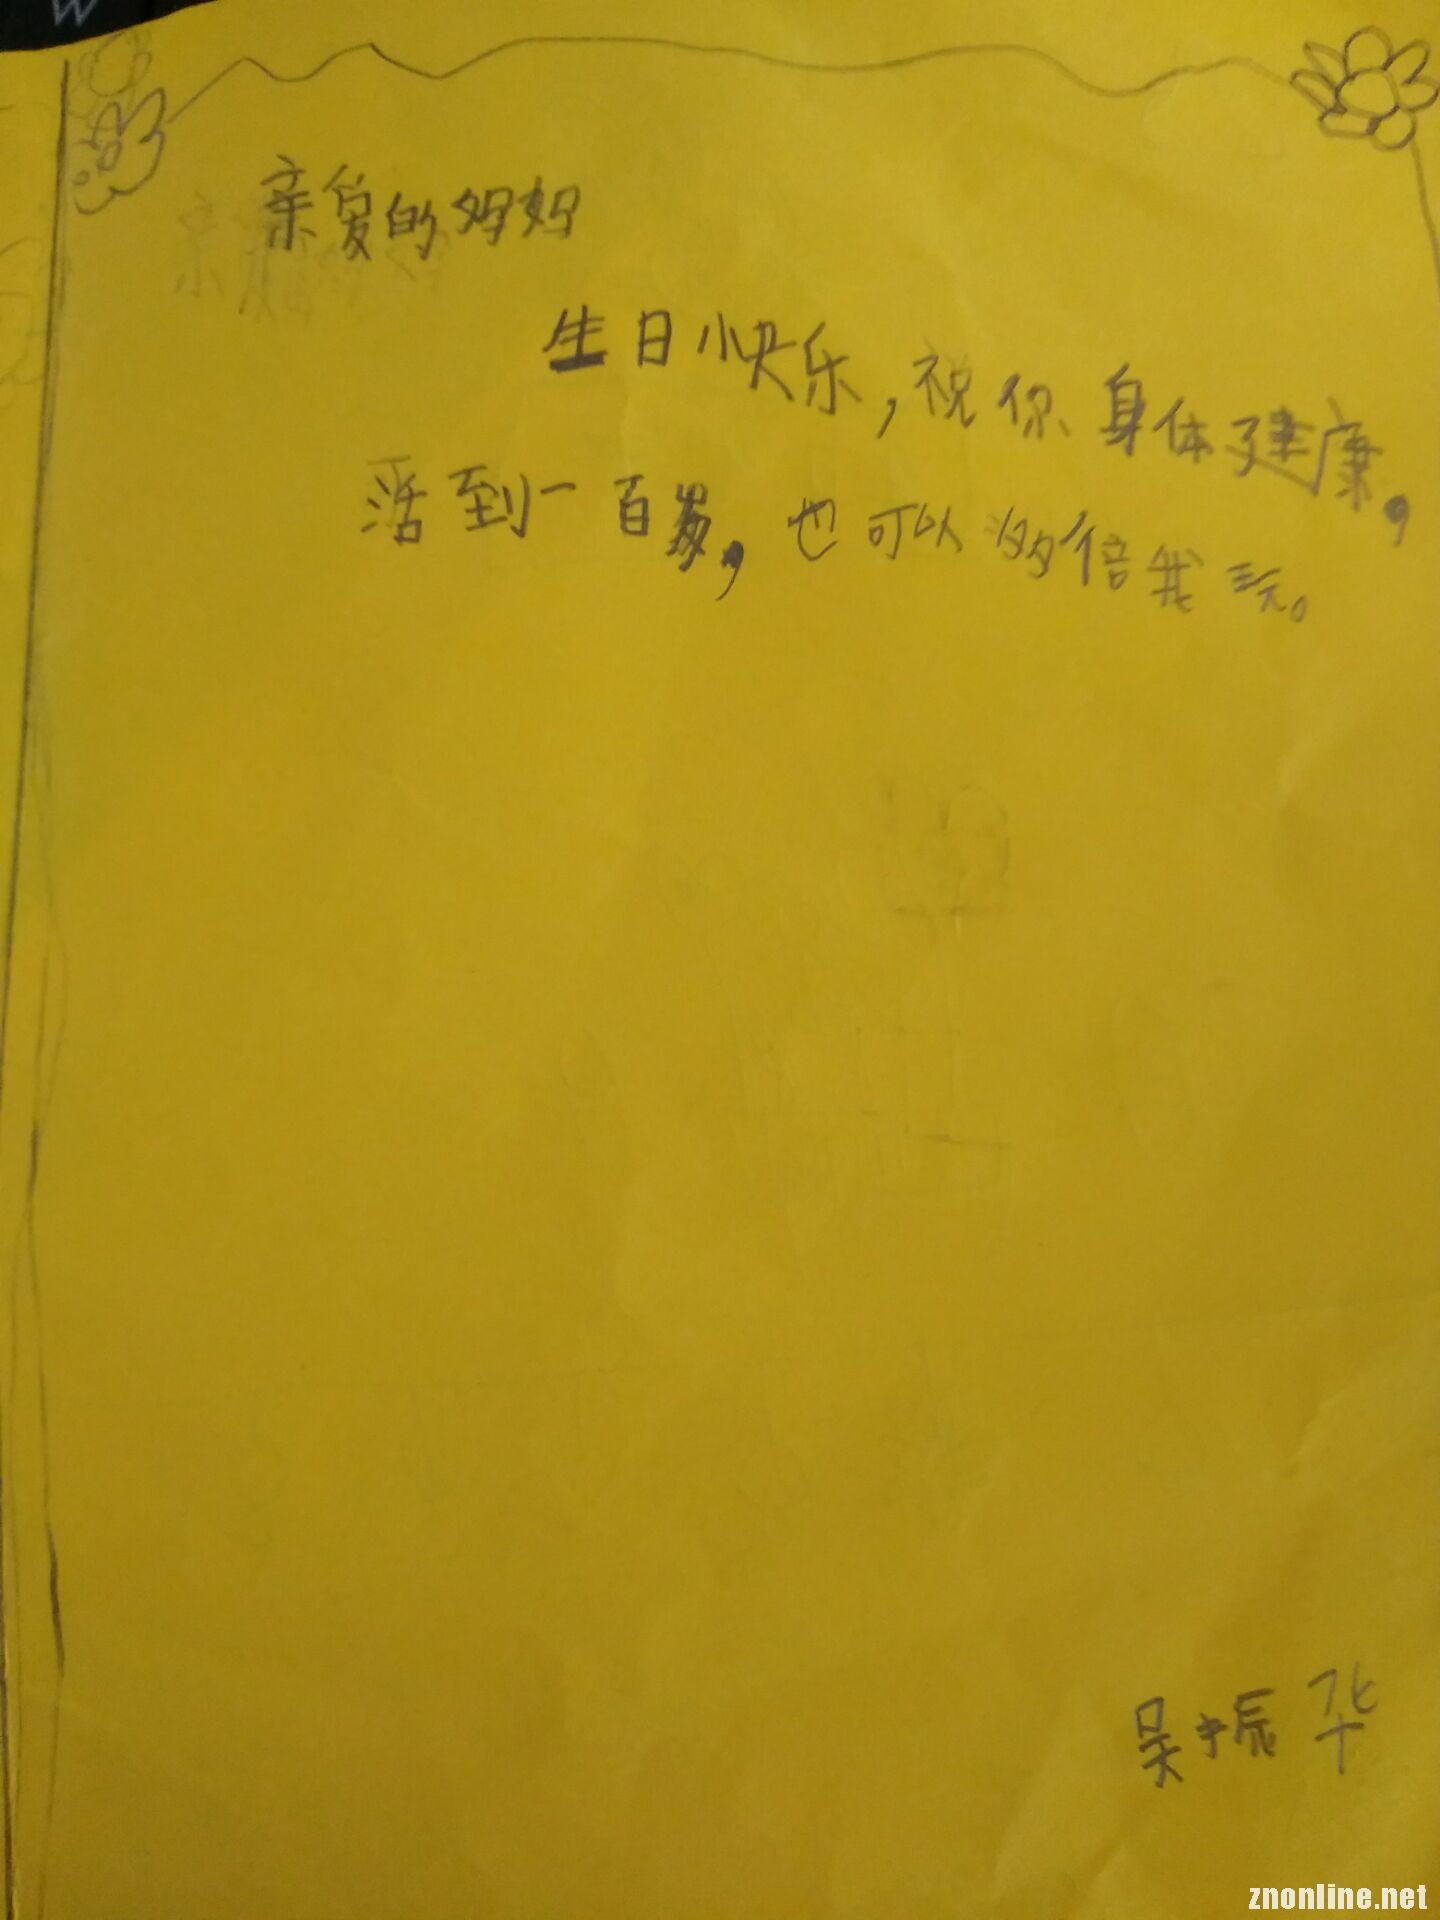 W
亲爱的妈妈
生日快乐,祝你身体健康,
活到一百岁,也可以多倍我玩。
吴振华
znonline.net